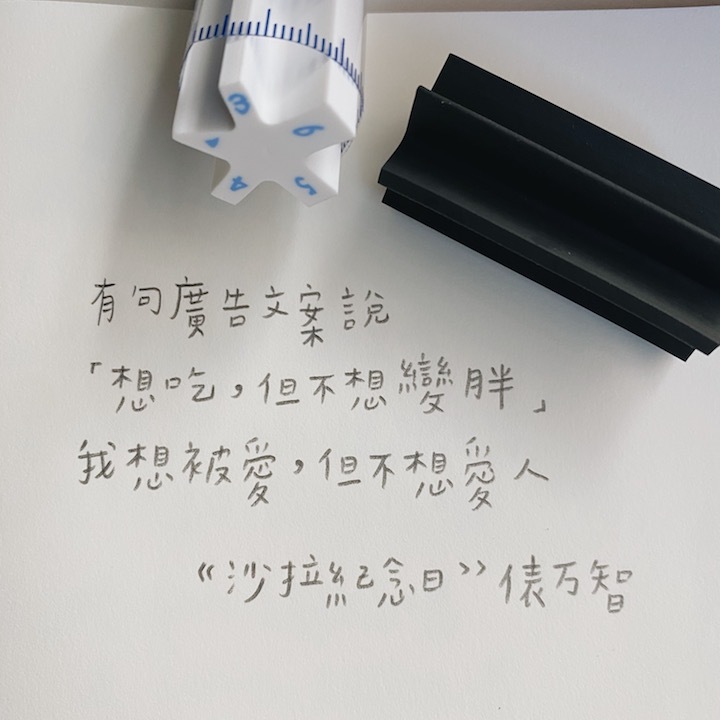 3 6 5 4
有句廣告文案說
「想吃，但不想變胖」
我想被愛，但不想愛人
《沙拉紀念日》俵万智